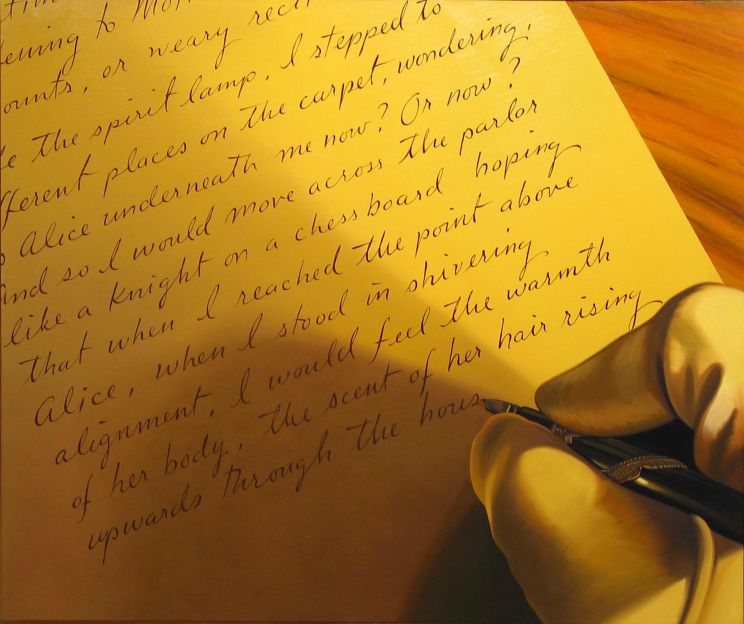 to
ounts, or weary
the spirit lamp. I stepped to
places on the carpet, wondering,
Alice underneath me now? Or now?
And so I would move across the parlor
like a knight on a chessboard hoping
that when I reached the point above
Alice, when I stood in shivering
alignment, I would feel the warmth
of her body, the scent of her hair rising
upwards through the hous